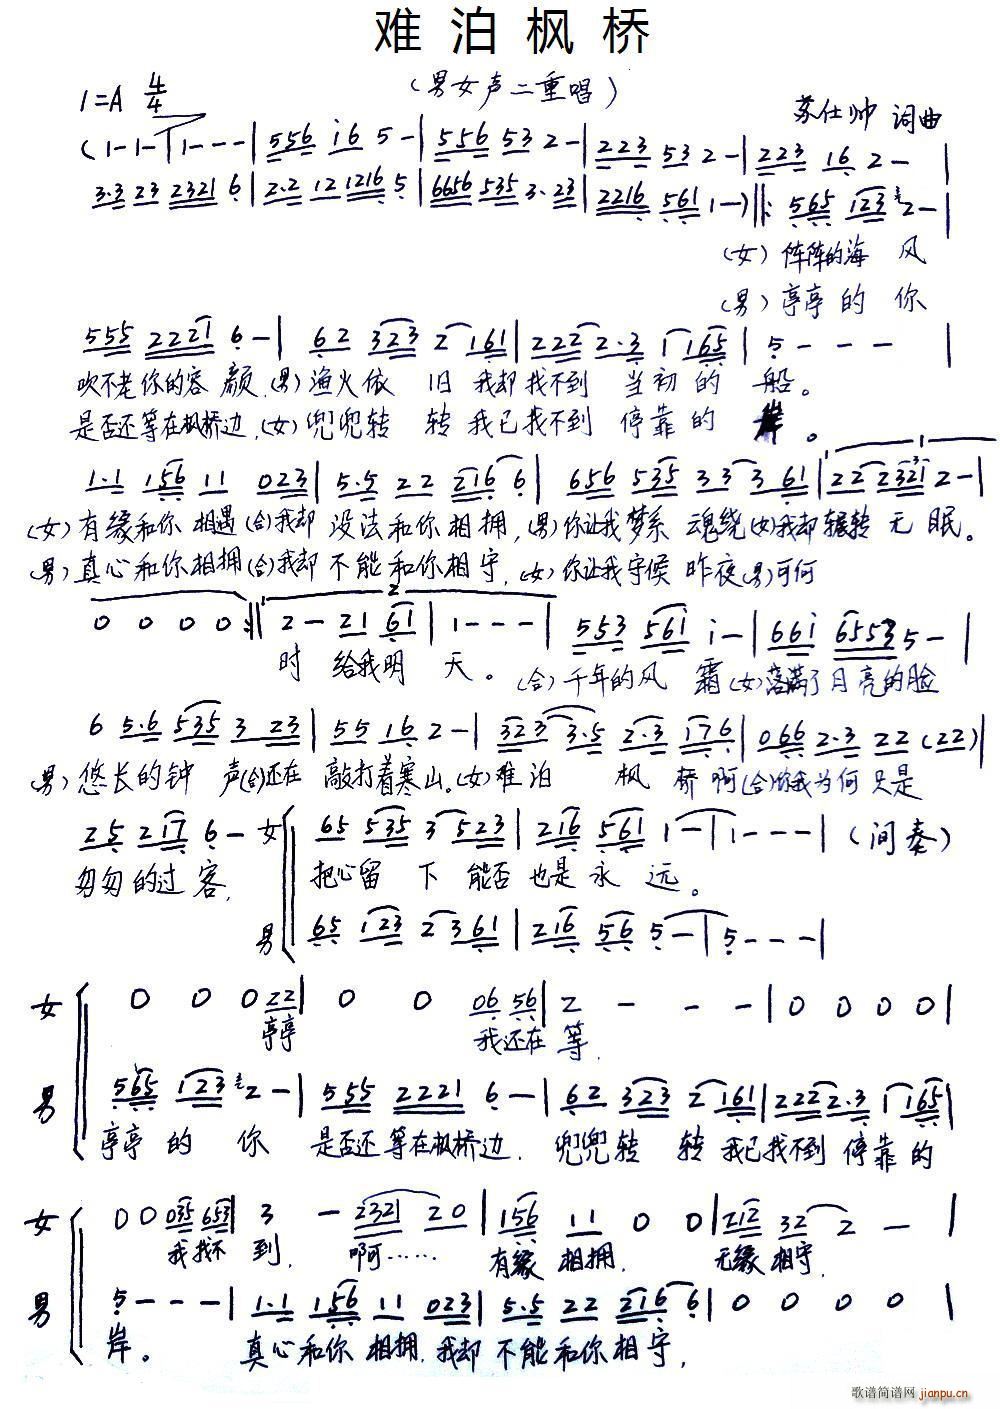 难泊枫桥
(男女声二重唱)
1=A 4/4
苏仕帅 词曲
(1-1-|1---|556 i6 5-|556 53 2-|223 53 2-|223 16 2-|
3·3 23 2321 6|2·2 12 1216 5|6656 535 3·23|2216 561 1-)‖: 565 123 ³2-|
(女)阵阵的海 风
(男)亭亭 的 你
555 2221 6-|62 323 2 161|222 2·3 1 165|5---|
吹不老你的容 颜,(男)渔火依 旧 我却找不到 当初 的 船。
是否还等在枫桥边,(女)兜兜转 转 我已找不到 停靠 的 岸。
1·1 156 11 023|5·5 22 216 6|656 535 33 3 61|22 2321 2-|
(女)有缘和你 相遇(合)我却 没法 和你相拥,(男)你让我梦系 魂绕(女)我却辗转 无 眠。
(男)真心和你相拥(合)我却 不能 和你相守,(女)你让我守候 昨夜(男)可何
0 0 0 0:‖2- 21 61|1---|553 561 i-|66i 6553 5-|
时 给我明 天。(合)千年的风 霜(女)落满了月亮的脸
6 5·6 535 3 23|55 16 2-|323 3·5 2·3 176|066 2·3 22 (22)|
男)悠长的钟 声(合)还在 敲打着寒山。(女)难泊 枫 桥啊(合)你我为何只是
25 217 6- 女 65 535 3 523|216 561 1-|1---|(间奏)
匆匆的过客, 把心留 下 能否 也是 永 远。
男 65 123 2 361|216 56 5-|5---|
女 0 0 0 22|0 0 06 56|2 - - -|0 0 0 0|
亭亭 我还在 等,
男 565 123 ³2-|555 2221 6-|62 323 2 161|222 2·3 1 165|
亭亭 的 你 是否还等在枫桥边, 兜兜转 转 我已找不到 停靠 的
女 0 0 035 653|3 - 2321 20|156 11 0 0|212 32 2 -|
我找不 到, 啊…… 有缘 相拥, 无缘 相守,
男 5---|1·1 156 11 023|5·5 22 216 6|0 0 0 0|
岸。 真心和你 相拥,我却 不能和你相守,
歌谱简谱网 jianpu.cn